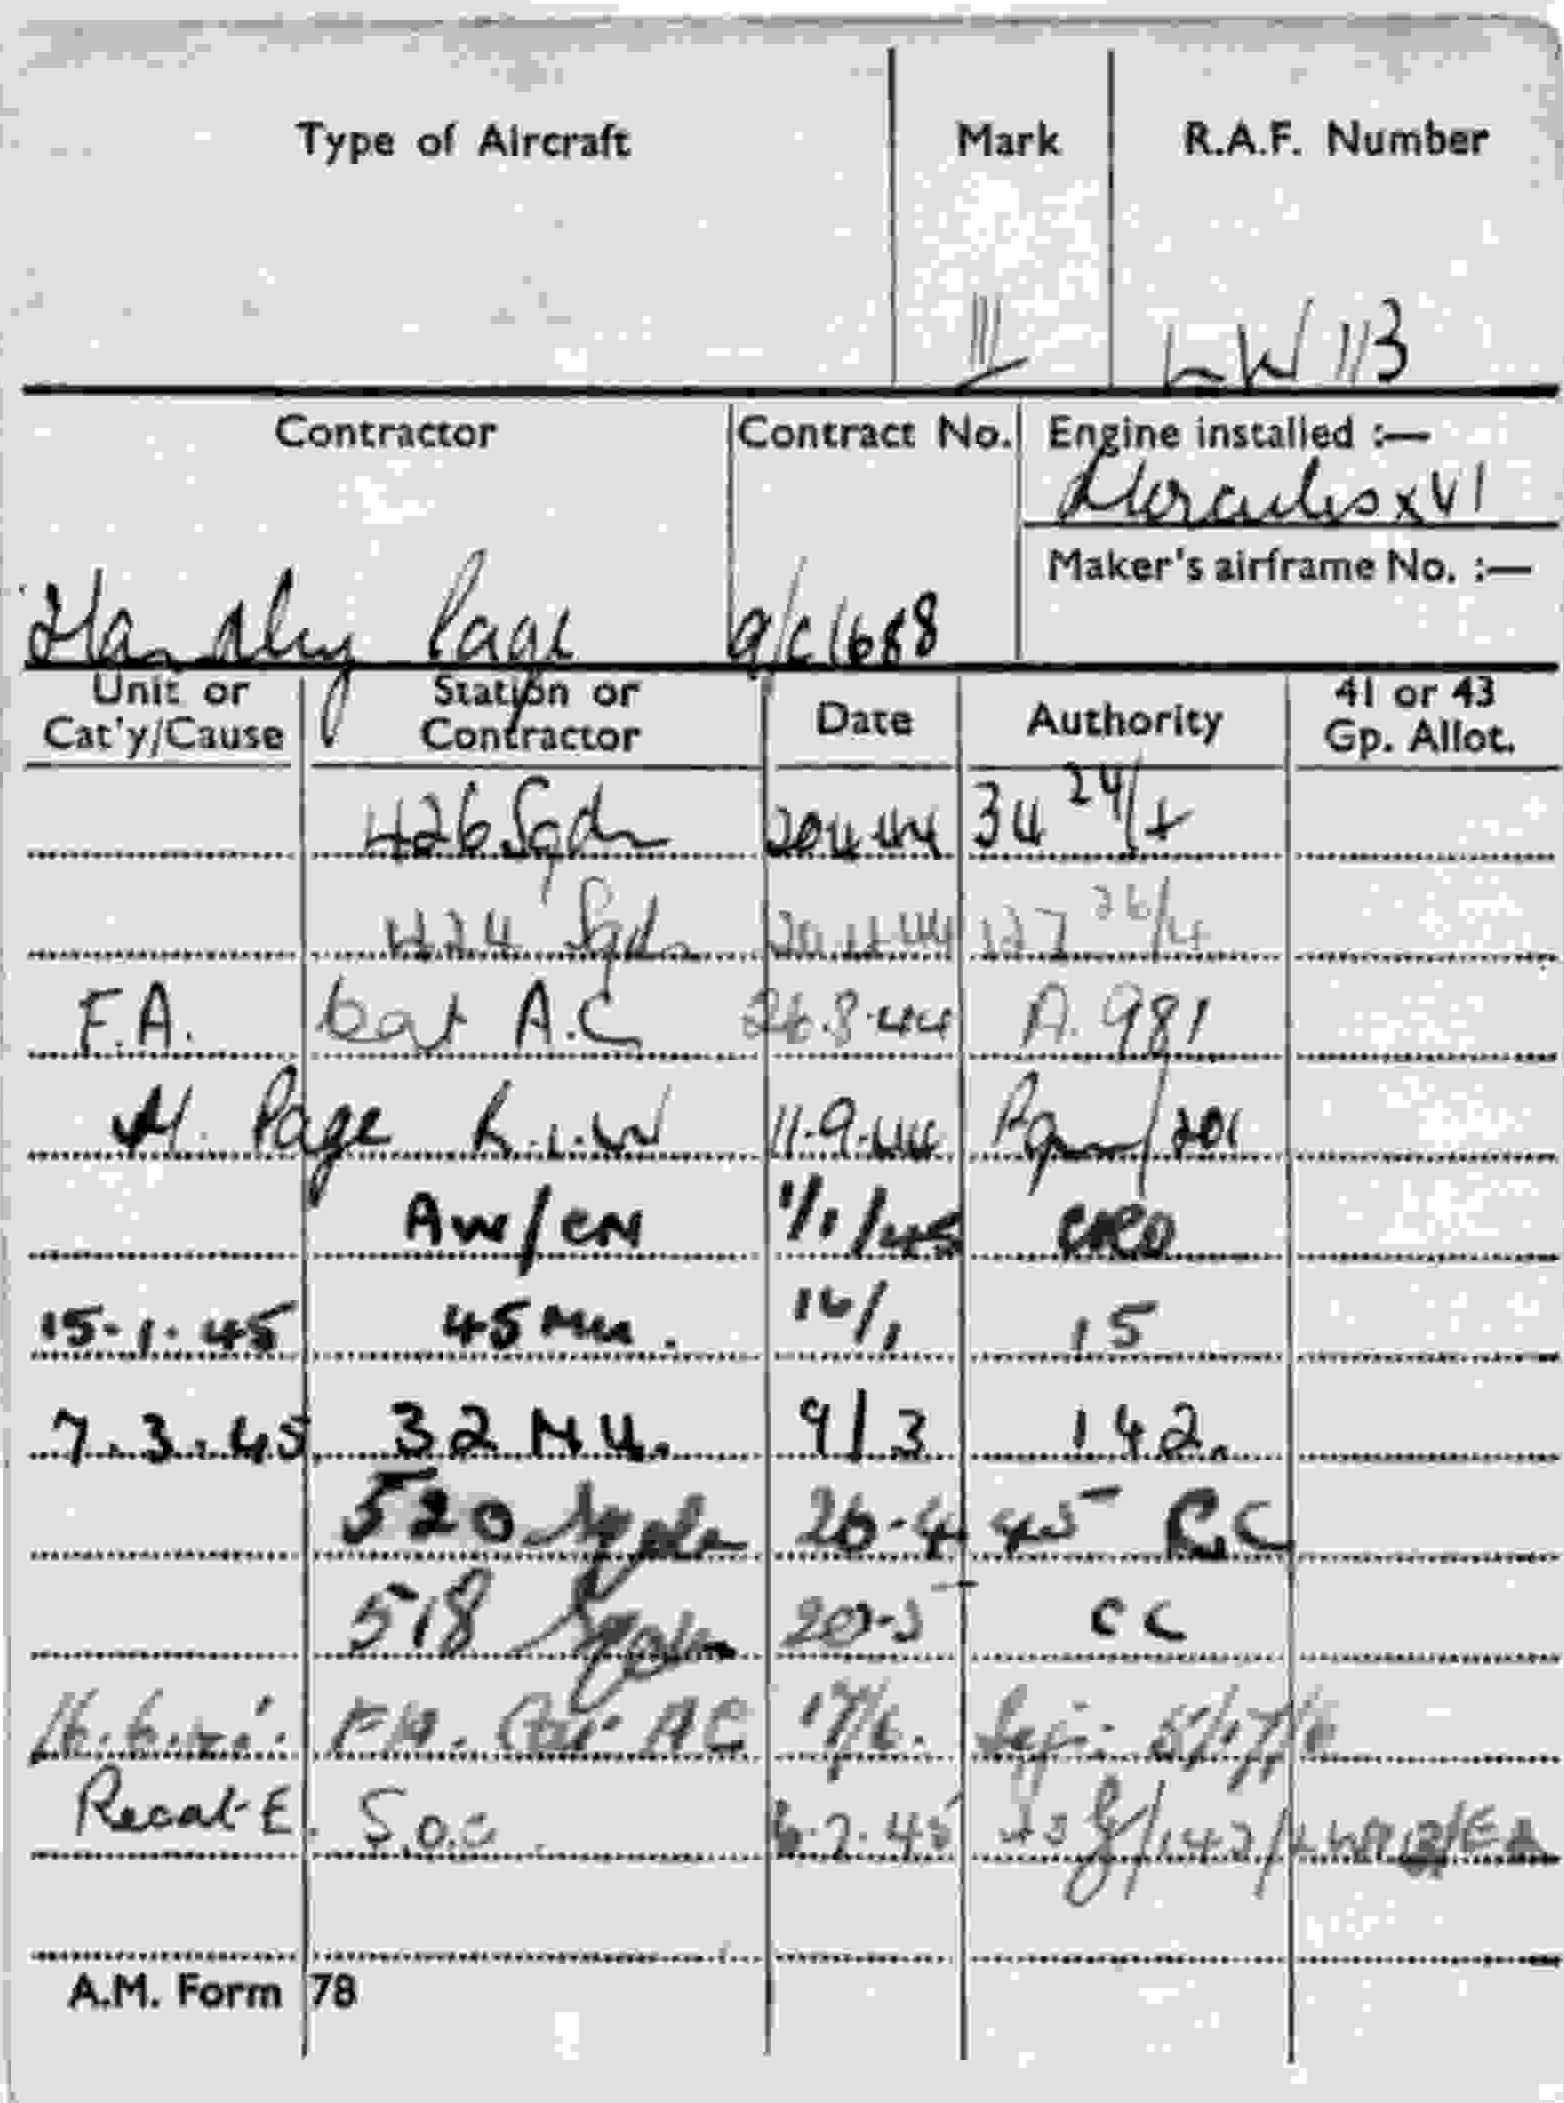 Type of Aircraft Mark R.A.F. Number
III LW 113
Contractor Contract No. Engine installed :—
Hercules XVI
Maker's airframe No. :—
Handley Page a/c 1688
Unit or Cat'y/Cause Station or Contractor Date Authority 41 or 43 Gp. Allot.
426 Sqdn 20.4.44 34 24/4
424 Sqdn 127 26/4
F.A. Cat A.C 26.8.44 A. 981
H. Page R.I.W 11.9.44
AW/CN 1/1/45 CRO
15.1.45 45 Mu. 16/1 15
7.3.45 32 M.U. 9/3 142.
520 Sqdn 26.4.45
518 Sqdn 20.5 CC
16.6.45. F.A. Cat AC 17/6. 5/17/6
Recat E. S.O.C. 6.7.45
A.M. Form 78